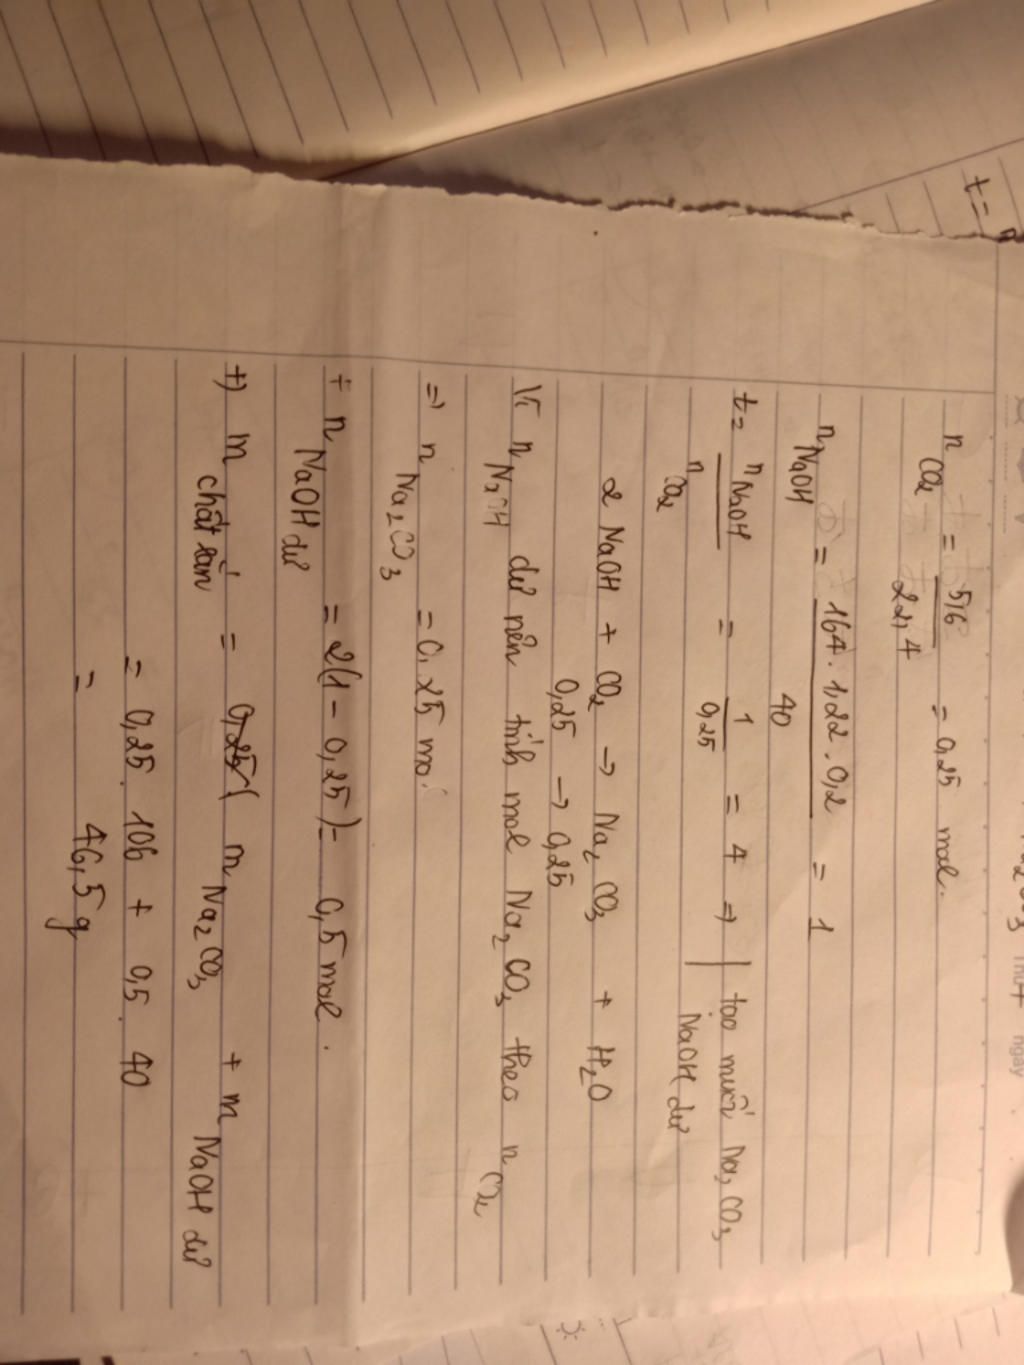 n CO₂ = 5,6 / 22,4 = 0,25 mol.
n NaOH = 164 . 1,22 . 0,2 / 40 = 1
t = n NaOH / n CO₂ = 1 / 0,25 = 4 => | tạo muối Na₂CO₃
NaOH dư
2 NaOH + CO₂ → Na₂CO₃ + H₂O
0,25 → 0,25
Vì n NaOH dư nên tính mol Na₂CO₃ theo n CO₂
=> n Na₂CO₃ = 0,25 mol
+ n NaOH dư = 2(1 - 0,25) = 0,5 mol.
+) m chất rắn = 0,25( m Na₂CO₃ + m NaOH dư
= 0,25 . 106 + 0,5 . 40
= 46,5 g
t =
ngày